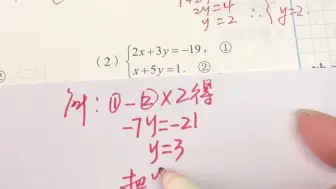 2y=4
y=2 ∴{y=2.
(2) {2x+3y=-19, ①
x+5y=1. ②
解:①-②×2得
-7y=-21
y=3
把